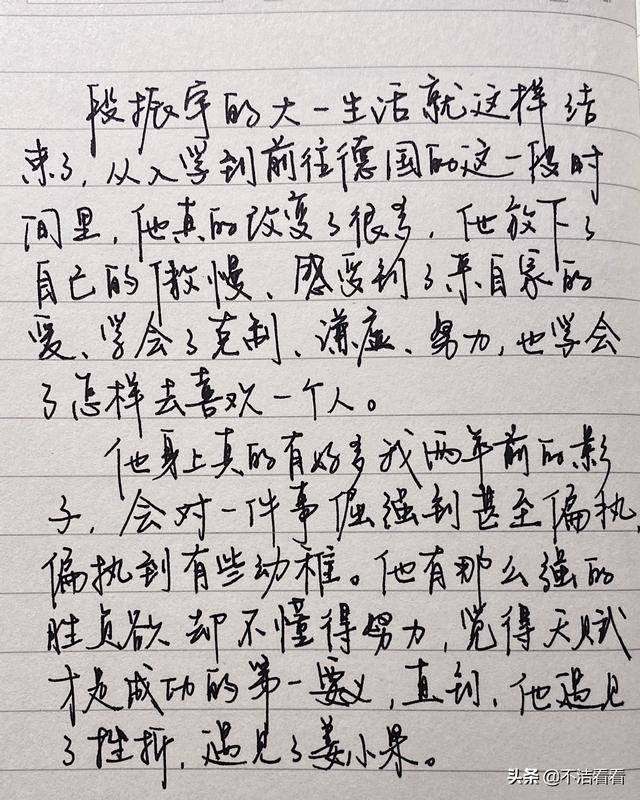 段振宇的大一生活就这样结
束了,从入学到前往德国的这一段时
间里,他真的改变了很多,他放下了
自己的傲慢、感受到了来自家的
爱、学会了克制、谦虚、努力,也学会
了怎样去喜欢一个人。
他身上真的有好多我两年前的影
子,会对一件事倔强到甚至偏执,
偏执到有些幼稚。他有那么强的
胜负欲却不懂得努力,觉得天赋
才是成功的第一要义,直到,他遇见
了挫折,遇见了姜小果。
头条 @不洁看看